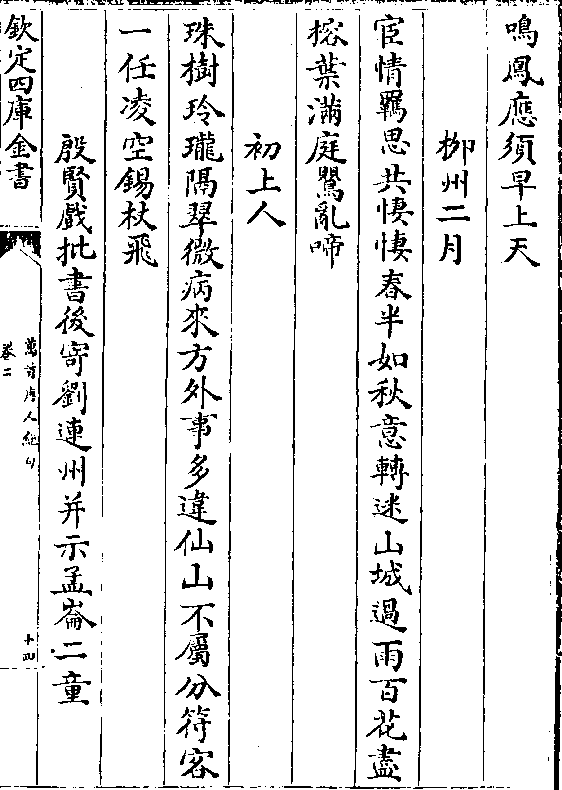 鳴鳳應須早上天
柳州二月
宦情羈思共悽悽春半如秋意轉迷山城過雨百花盡
榕葉滿庭鶯亂啼
初上人
珠樹玲瓏隔翠微病來方外事多違仙山不屬分符客
一任凌空錫杖飛
殷賢戲批書後寄劉連州并示孟崙二童
欽定四庫全書
萬首唐人絶句
卷二
十四